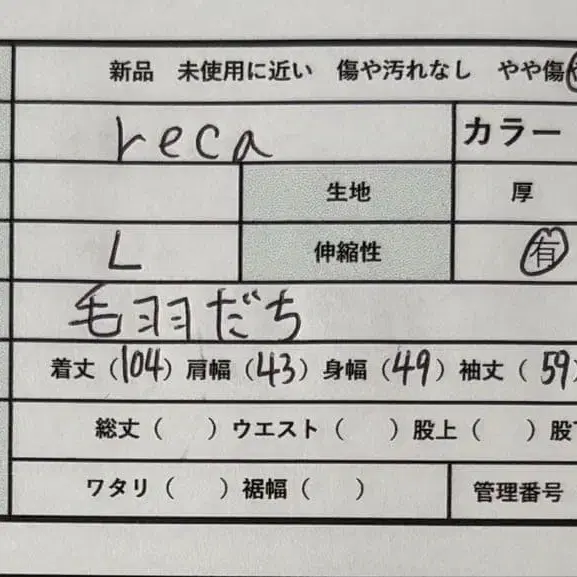 新品 未使用に近い 傷や汚れなし やや傷
reca カラー
生地 厚
L 伸縮性 有
毛羽だち
着丈（104）肩幅（43）身幅（49）袖丈（59
総丈（ ）ウエスト（ ）股上（ ）股下
ワタリ（ ）裾幅（ ） 管理番号